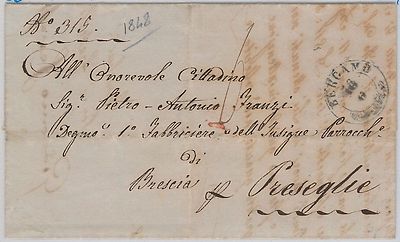 N.º 315.
1848
BERGAMO
All' Onorevole Cittadino
Sig.r Pietro - Antonio Franzi
Degmo. 1º Fabbriciere dell' Insigne Parrocch.
di
Brescia p Preseglie